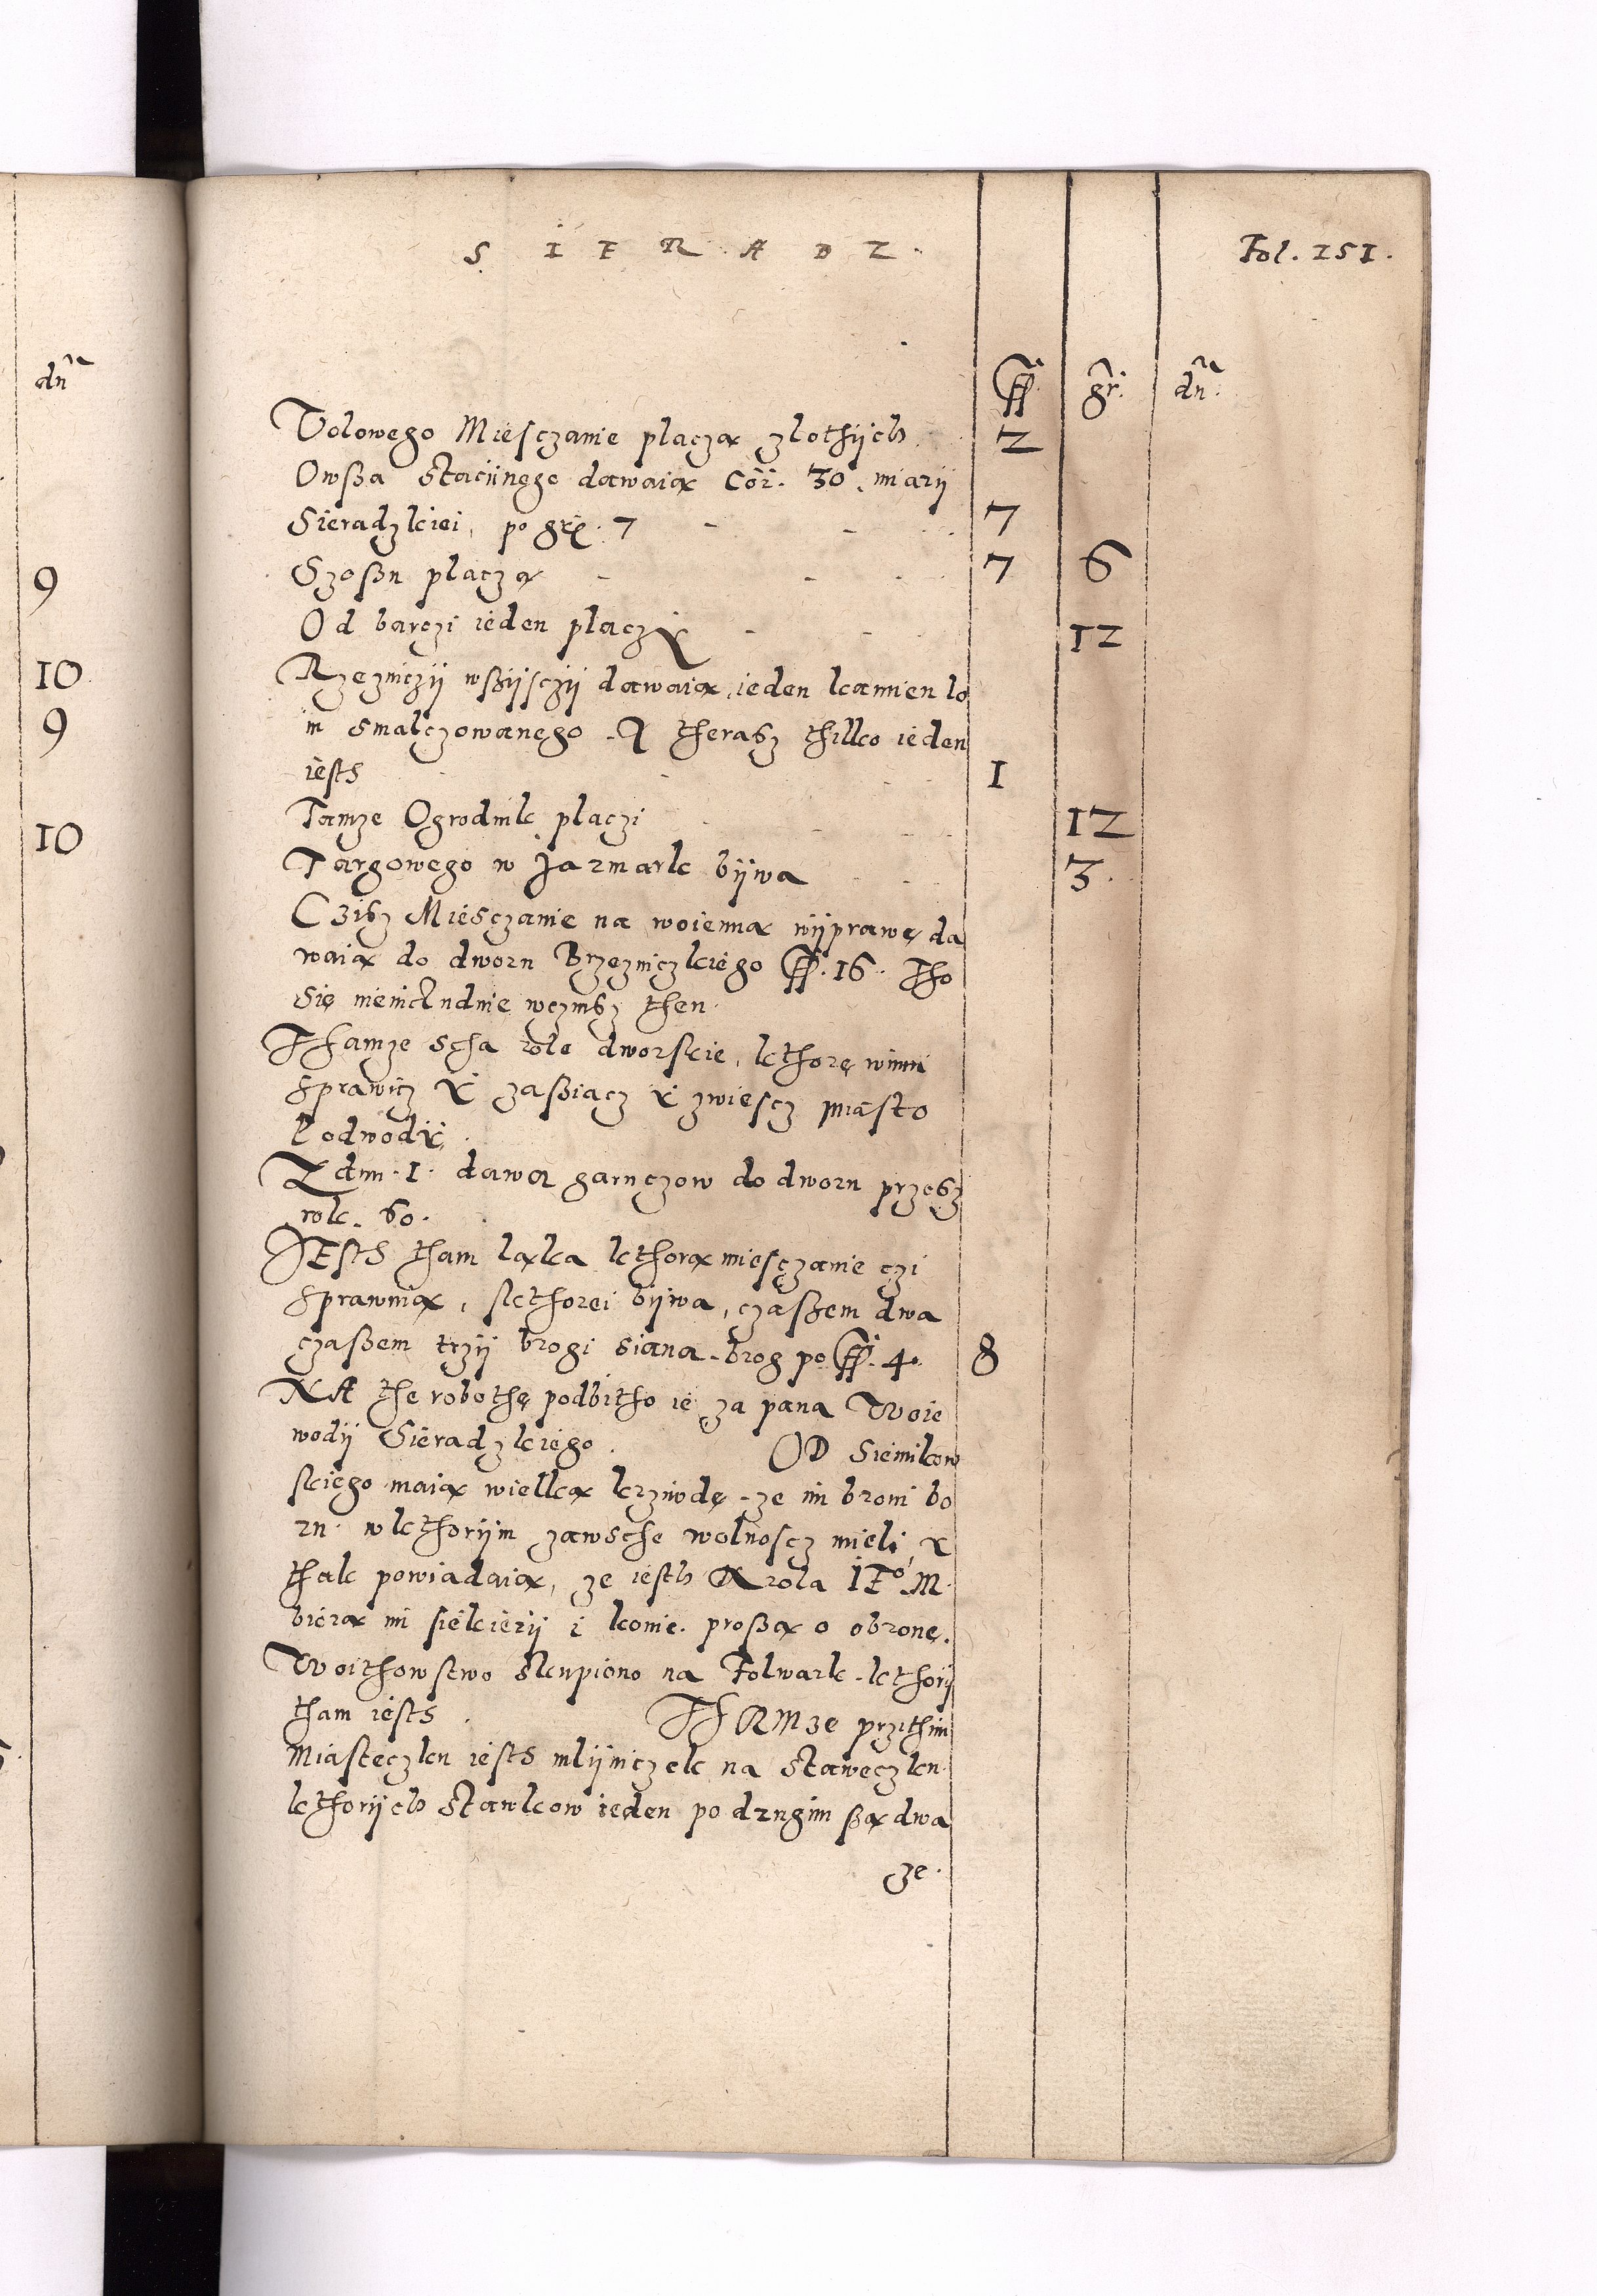 SIERADZ.
Fol. 151.
ff. gr. dn.
dn
Wolowego Miesczanie placzą zlothijch 2
Owssa Stacijnego dawaią Cor. 30. miarij
Sieradzkiei, po grx. 7 - - 7
Szossu placzą - - 7 6
Od barczi ieden placzy - - 12
Rzezniczij wssijsczij dawaią ieden kamien lo
iu smalczowanego. A therasz thilko ieden
iesth - - 1
Tamze Ogrodnik placzi - - 12
Targowego w Jarmark bijwa - - 3.
Czisz Miesczanie na woienną wijprawę da
waią do dworu Brzezniczkiego ff. 16. Tho
Się
Thamze scha role dworskie, kthorę winni
Sprawicz y zassiacz y zwiescz miasto
Podwody.
Zdun. 1. dawa garnczow do dworu przesz
rok. 60.
IEsth tham łąka kthorą miesczanie czi
Sprawuią, skthorei bijwa, czassem dwa
czassem trzij brogi siana. brog po ff. 4. 8
NA the robothę podbitho ie za pana Woie
wodij Sieradzkiego. OD Siemikow
skiego maią wielką krziwdę. ze im broni bo
ru. wkthorijm zawsche wolnoscz mieli, y
thak powiadaią, ze iesth Krola IEo. M.
bierą im siekierij i konie. prossą o obronę.
Woithowstwo Skupiono na Folwark. kthorij
tham iesth. THAMze przithim
Miasteczku iesth mlijniczek na Staweczku.
kthorijch Stawkow ieden po drugim ssą dwa
ze.
9
10
9
10